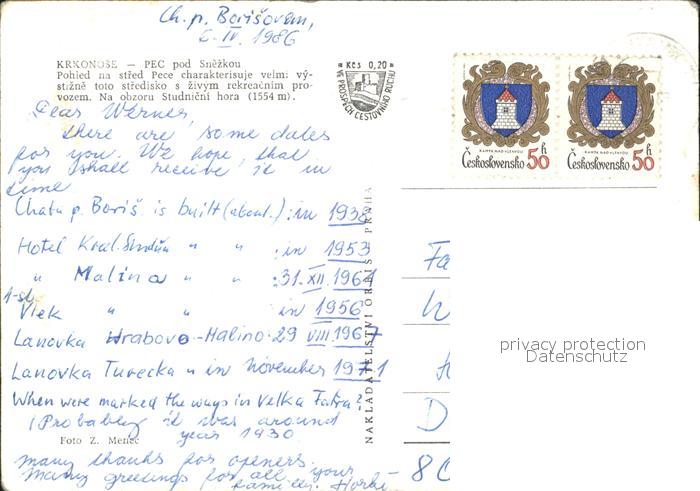 Ch. p. Borišovem,
6. IV. 1986
KRKONOŠE — PEC pod Sněžkou
Pohled na střed Pece charakterisuje velmi vý-
stižně toto středisko s živým rekreačním pro-
vozem. Na obzoru Studniční hora (1554 m).
Kčs 0,20
VE PROSPĚCH CESTOVNÍHO RUCHU
KAMÝK NAD VLTAVOU
Československo 50 h
KAMÝK NAD VLTAVOU
Československo 50 h
Dear Werner,
there are some dates
for you. We hope, that
you shall receive it in
time
Chata p. Boriš is built (about) : in 1938
Hotel Kral. Studňa " " : in 1953
" Malina " " : 31. XII. 1961
Vlek " " in 1956
Lanovka Hrabovo - Malino : 29 VIII. 1967
Lanovka Turecka " in November 1971
When were marked the ways in Velka Fatra?
(Probabley it was around
year 1930.
Foto Z. Menec
many thanks for openers.
Many greetings for all your
family. Horki
NAKLADATELSTVÍ ORBIS PRAHA
Fa
D
80
privacy protection
Datenschutz